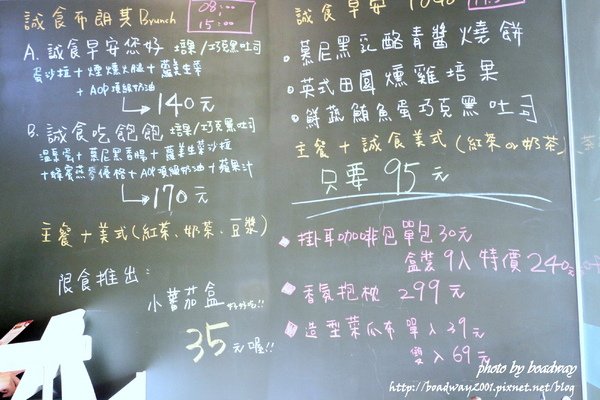 誠食布朗其Brunch
08:00
15:00
A. 誠食早安您好 堤果/巧克黑吐司
蛋沙拉+煙燻火腿+蘿美生菜
+AOP頂級奶油
140元
B. 誠食吃飽飽 堤果/巧克黑吐司
溫泉蛋+慕尼黑香腸+蘿美生菜沙拉
+蜂蜜燕麥優格+AOP頂級奶油+蘋果汁
170元
主餐+美式(紅茶、奶茶、豆漿)
限食推出:
小蕃茄盒 好好吃!!
35元喔!!
誠食早安
慕尼黑乳酪青醬燒餅
英式田園燻雞培果
鮮蔬鮪魚蛋巧克黑吐司
主餐+誠食美式(紅茶or奶茶)
只要 95元
掛耳咖啡包單包30元
盒裝9入特價240元
香氛抱枕 299元
造型菜瓜布單入39元
雙入69元
photo by boadway
http://boadway2001.pixnet.net/blog